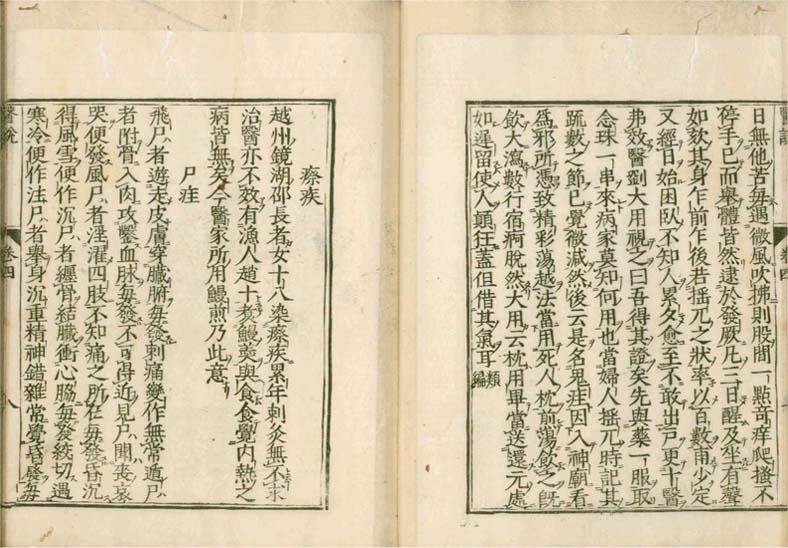 醫說
卷四
日無他苦每遇微風吹拂則股間一點奇痒爬搔不
停手已而舉體皆然逮於發厥凡三日醒及坐有聲
如欬其身乍前乍後若揺兀之狀率以百數甫少定
又經日始困臥不知人累夕愈至不敢出戸更十醫
弗效醫劉大用視之曰吾得其證矣先與藥一服取
念珠一串來病家莫知何用也當婦人揺兀時記其
疏數之節已覺微減然後云是名鬼疰因入神廟看
爲邪所憑致精彩蕩越法當用死人枕煎湯飲之既
飲大瀉數行宿痾脫然大用云枕用畢當送還元處
如遲留使人顛狂蓋但借其氣耳類編
瘵疾
越州鏡湖邵長者女十八染瘵疾累年刺灸無不求
治醫亦不效有漁人趙十煮鰻羹與食食覺内熱之
病皆無矣今醫家所用鰻煎乃此意
尸疰
飛尸者遊走皮膚穿臟腑每發刺痛變作無常遁尸
者附骨入肉攻鑿血脉每發不可得近見尸聞喪哀
哭便發風尸者淫濯四肢不知痛之所在每發昏沉
得風雪便作沉尸者纏骨結臟衝心脇每發絞切遇
寒冷便作注尸者舉身沉重精神錯雜常覺昏發每
醫說
卷四
八